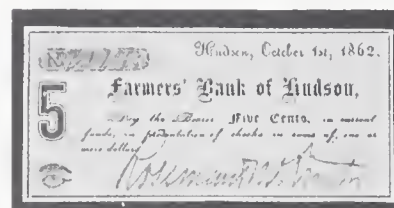 Hudson, October 1st, 1862.
Farmers' Bank of Hudson,
5
Pay the Bearer FIVE CENTS, in current
funds, on presentation of checks in sums of, one or
more dollars